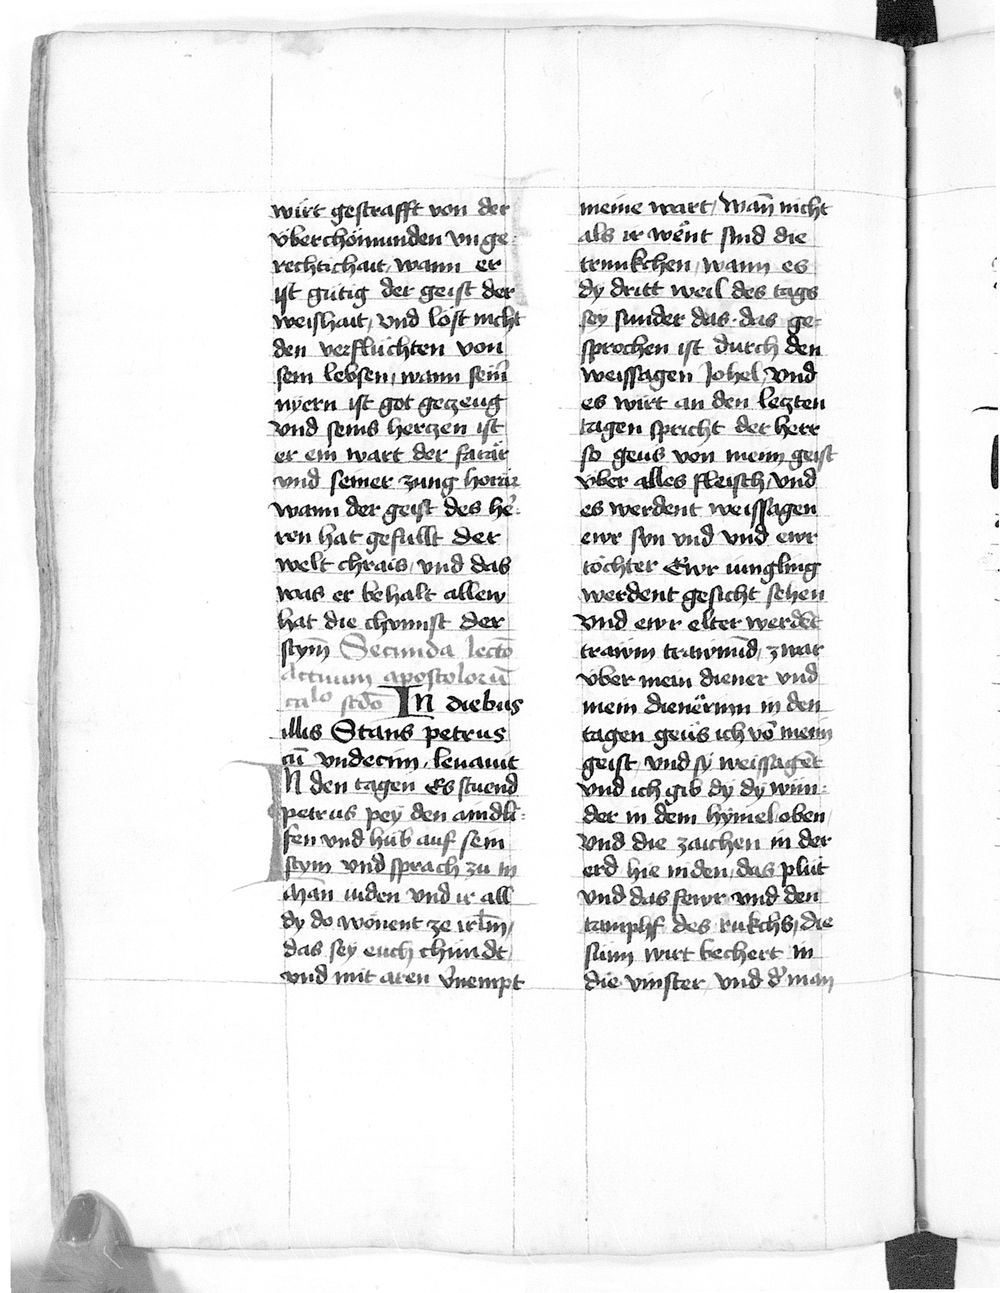 wirt gestrafft von der
vberchömunden vnge-
rechtichait, wann er
ist gütig der geist der
weishait, vnd löst nicht
den verflüchten von
sein lebsen, wann seiner
nyern ist got getzeug
vnd seins hertzen ist
er ein wart der
vnd seiner zung horär
wann der geist des he-
ren hat gefullt der
welt chrais, vnd das
was er behalt allew
hat die chvnnst der
stym̄ Secunda lectō
Actuum apostolorū
In diebus
illis Stans petrus
cū vndecim, leuauit
In den tagen Es stuend
petrus pey den aindli-
fen vnd hub auf sein
stym vnd sprach zu in
Man iuden vnd ir all
dy do wonent ze irlm̄,
das sey euch chundt,
vnd mit aren v̓nempt
meine wart, Wañ nicht
als ir wënt sind die
trunkchen, wann es
dy dritt weil des tags
sey sunder das·das ge-
sprochen ist durch den
weissagen Johel, vnd
es wirt an den letzten
tagen spricht der herr
so geus von meim geist
vber alles fleisch, vnd
es werdent weissagen
ewr svn vnd vnd ewr
töchter Ewr iungling
werdent gesicht sehen
vnd ewr elter werdēt
trawm trawmūd, zwar
vber mein diener vnd
mein dienërinn in den
tagen geus ich vō meim
geist, vnd sy weissagēt
vnd ich gib dy dy wun-
der in dem hymel oben,
vnd die zaichen in der
erd hie niden, das plüt
vnd das fewr vnd den
tamphf des rukchs, die
sunn wirt bechert in
die vinster, vnd d̓ man